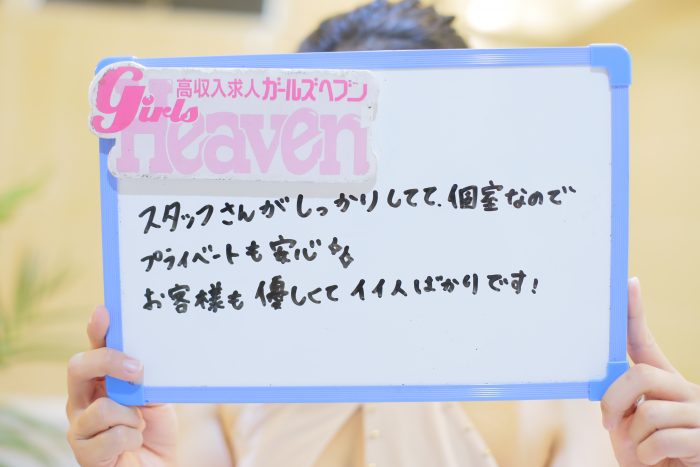 高収入求人ガールズヘブン
Girls
Heaven
スタッフさんがしっかりしてて、個室なので
プライベートも安心✧✧
お客様も優しくてイイ人ばかりです!